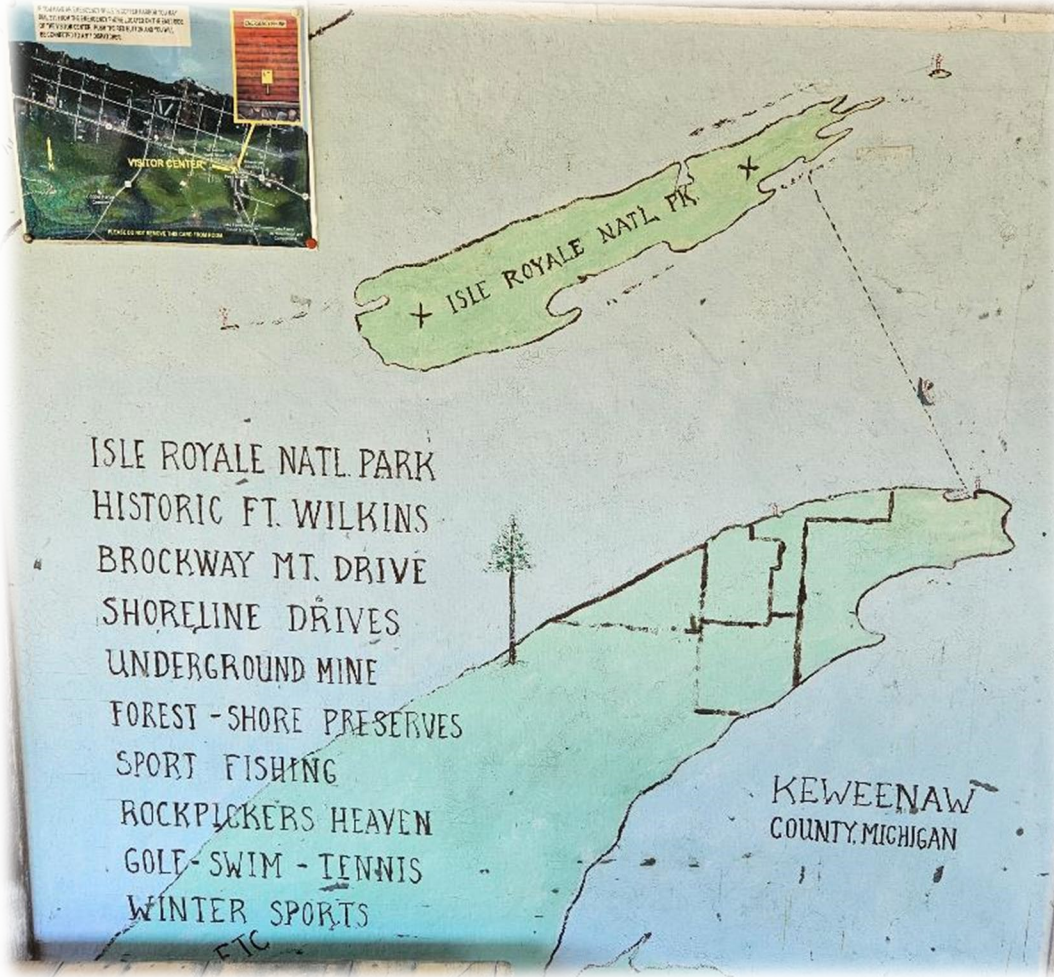 VISITOR CENTER
PLEASE DO NOT REMOVE THIS CARD FROM ROOM
ISLE ROYALE NATL. PK.
ISLE ROYALE NATL. PARK
HISTORIC FT. WILKINS
BROCKWAY MT. DRIVE
SHORELINE DRIVES
UNDERGROUND MINE
FOREST-SHORE PRESERVES
SPORT FISHING
ROCKPICKERS HEAVEN
GOLF-SWIM-TENNIS
WINTER SPORTS
ETC
KEWEENAW
COUNTY, MICHIGAN